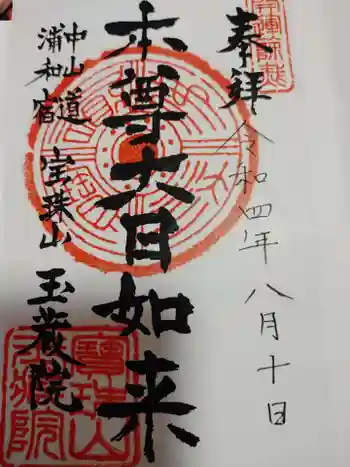 奉拝
令和四年八月十日
本尊大日如来
中山道
浦和宿
宝珠山
玉蔵院
寳珠山